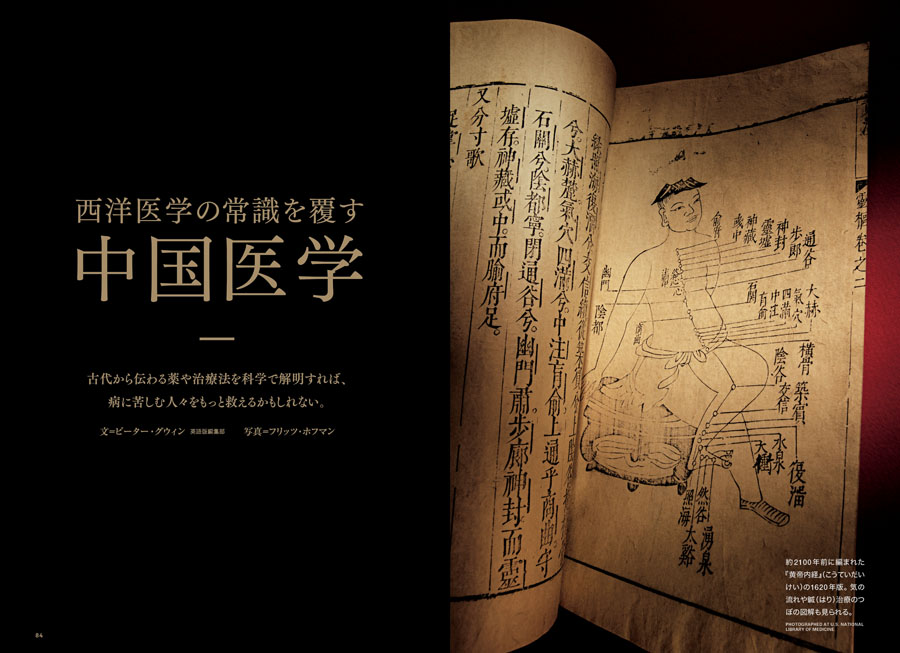 西洋医学の常識を覆す
中国医学
古代から伝わる薬や治療法を科学で解明すれば、
病に苦しむ人々をもっと救えるかもしれない。
文=ピーター・グウィン 英語版編集部 写真=フリッツ・ホフマン
84
兮。大赫麓氣穴四滿兮。中注肓俞上通乎商曲守
石關兮陰都寧。閉通谷兮。幽門肅。步廊神封而靈
墟存。神藏彧中。而腧府足。
又分寸歌
通谷
步郎
神封
靈墟
神藏
彧中
幽門
陰都
石關
大赫
氣穴
四滿
中注
肓俞
橫骨
陰谷
築賓
交信
復溜
水泉
大鐘
然谷
湧泉
照海
太谿
約2100年前に編まれた
『黄帝内経』(こうていだい
けい)の1620年版。気の
流れや鍼(はり)治療のつ
ぼの図解も見られる。
PHOTOGRAPHED AT U.S. NATIONAL
LIBRARY OF MEDICINE